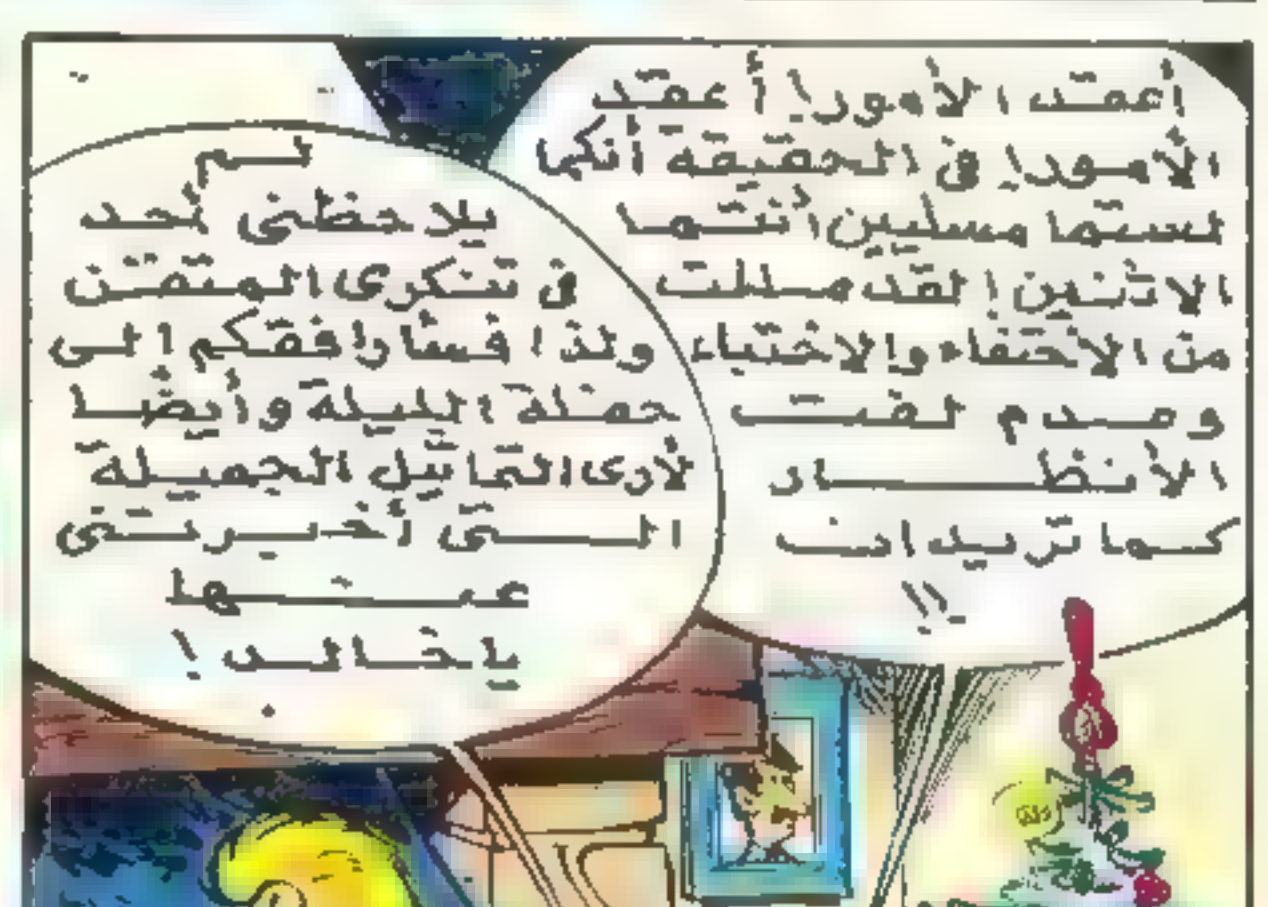 أعقد الأمور! أعقد
الأمور! في الحقيقة أنكما
لستما مسليين أنتما
الاثنين! لقد مللت
من الاختفاء والاختباء
وعدم لفت
الأنظار
كما تريدان
!!
لم
يلاحظني أحد
في تنكري المتقن
ولذا فسأرافقكم الى
حفلة الليلة وأيضا
لأرى التماثيل الجميلة
التي أخبرتني
عنها
يا خالد!